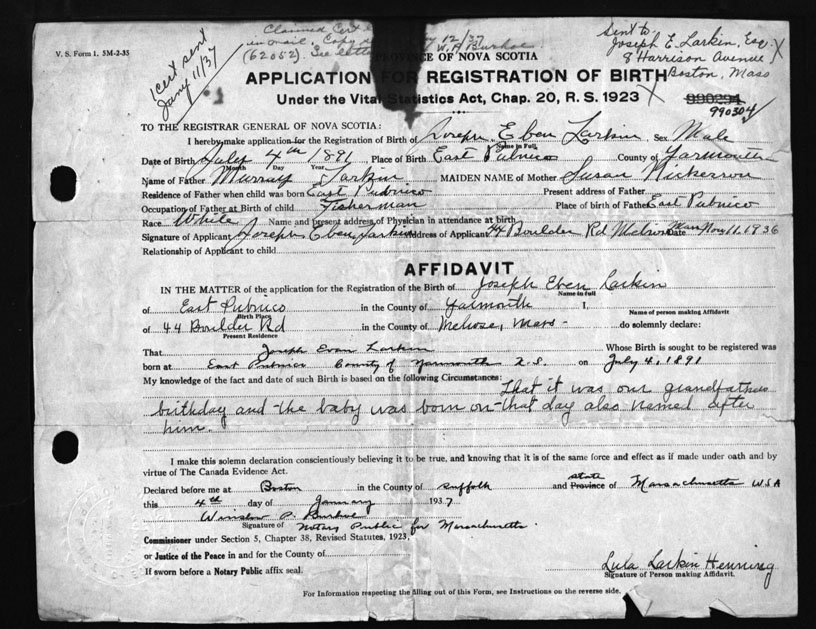 V. S. Form 1. 5M-2-35
Claimed Cert
in mail. Copy 12/37
(62052). See W. A. Burhoe
Cert sent
Jany 11/37
Sent to
Joseph E. Larkin, Esq.
8 Harrison Avenue
Boston, Mass
PROVINCE OF NOVA SCOTIA
APPLICATION FOR REGISTRATION OF BIRTH
Under the Vital Statistics Act, Chap. 20, R. S. 1923
990294
990304
TO THE REGISTRAR GENERAL OF NOVA SCOTIA:
I hereby make application for the Registration of Birth of Joseph Eben Larkin Sex Male
Name in Full
Date of Birth July 4th 1891 Place of Birth East Pubnico County of Yarmouth
Month Day Year
Name of Father Murray Larkin MAIDEN NAME of Mother Susan Nickerson
Residence of Father when child was born East Pubnico Present address of Father
Occupation of Father at Birth of child Fisherman Place of birth of Father East Pubnico
Race White Name and present address of Physician in attendance at birth
Signature of Applicant Joseph Eben Larkin Address of Applicant 44 Boulder Rd Melrose Mass Date Nov 11, 1936
Relationship of Applicant to child
AFFIDAVIT
IN THE MATTER of the application for the Registration of the Birth of Joseph Eben Larkin
Name in Full
of East Pubnico in the County of Yarmouth I,
Birth Place Name of person making Affidavit
of 44 Boulder Rd in the County of Melrose, Mass - do solemnly declare:
Present Residence
That Joseph Evan Larkin Whose Birth is sought to be registered was
born at East Pubnico County of Yarmouth N.S. on July 4, 1891
My knowledge of the fact and date of such Birth is based on the following Circumstances: That it was our grandfathers
birthday and the baby was born on that day also named after
him.
I make this solemn declaration conscientiously believing it to be true, and knowing that it is of the same force and effect as if made under oath and by
virtue of The Canada Evidence Act.
Declared before me at Boston in the County of Suffolk and Province of state Massachusetts USA
this 4th day of January 1937
Winslow P. Burhoe
Signature of Notary Public for Massachusetts.
Commissioner under Section 5, Chapter 38, Revised Statutes, 1923,
or Justice of the Peace in and for the County of
If sworn before a Notary Public affix seal.
Lula Larkin Henning
Signature of Person making Affidavit.
For Information respecting the filling out of this Form, see Instructions on the reverse side.